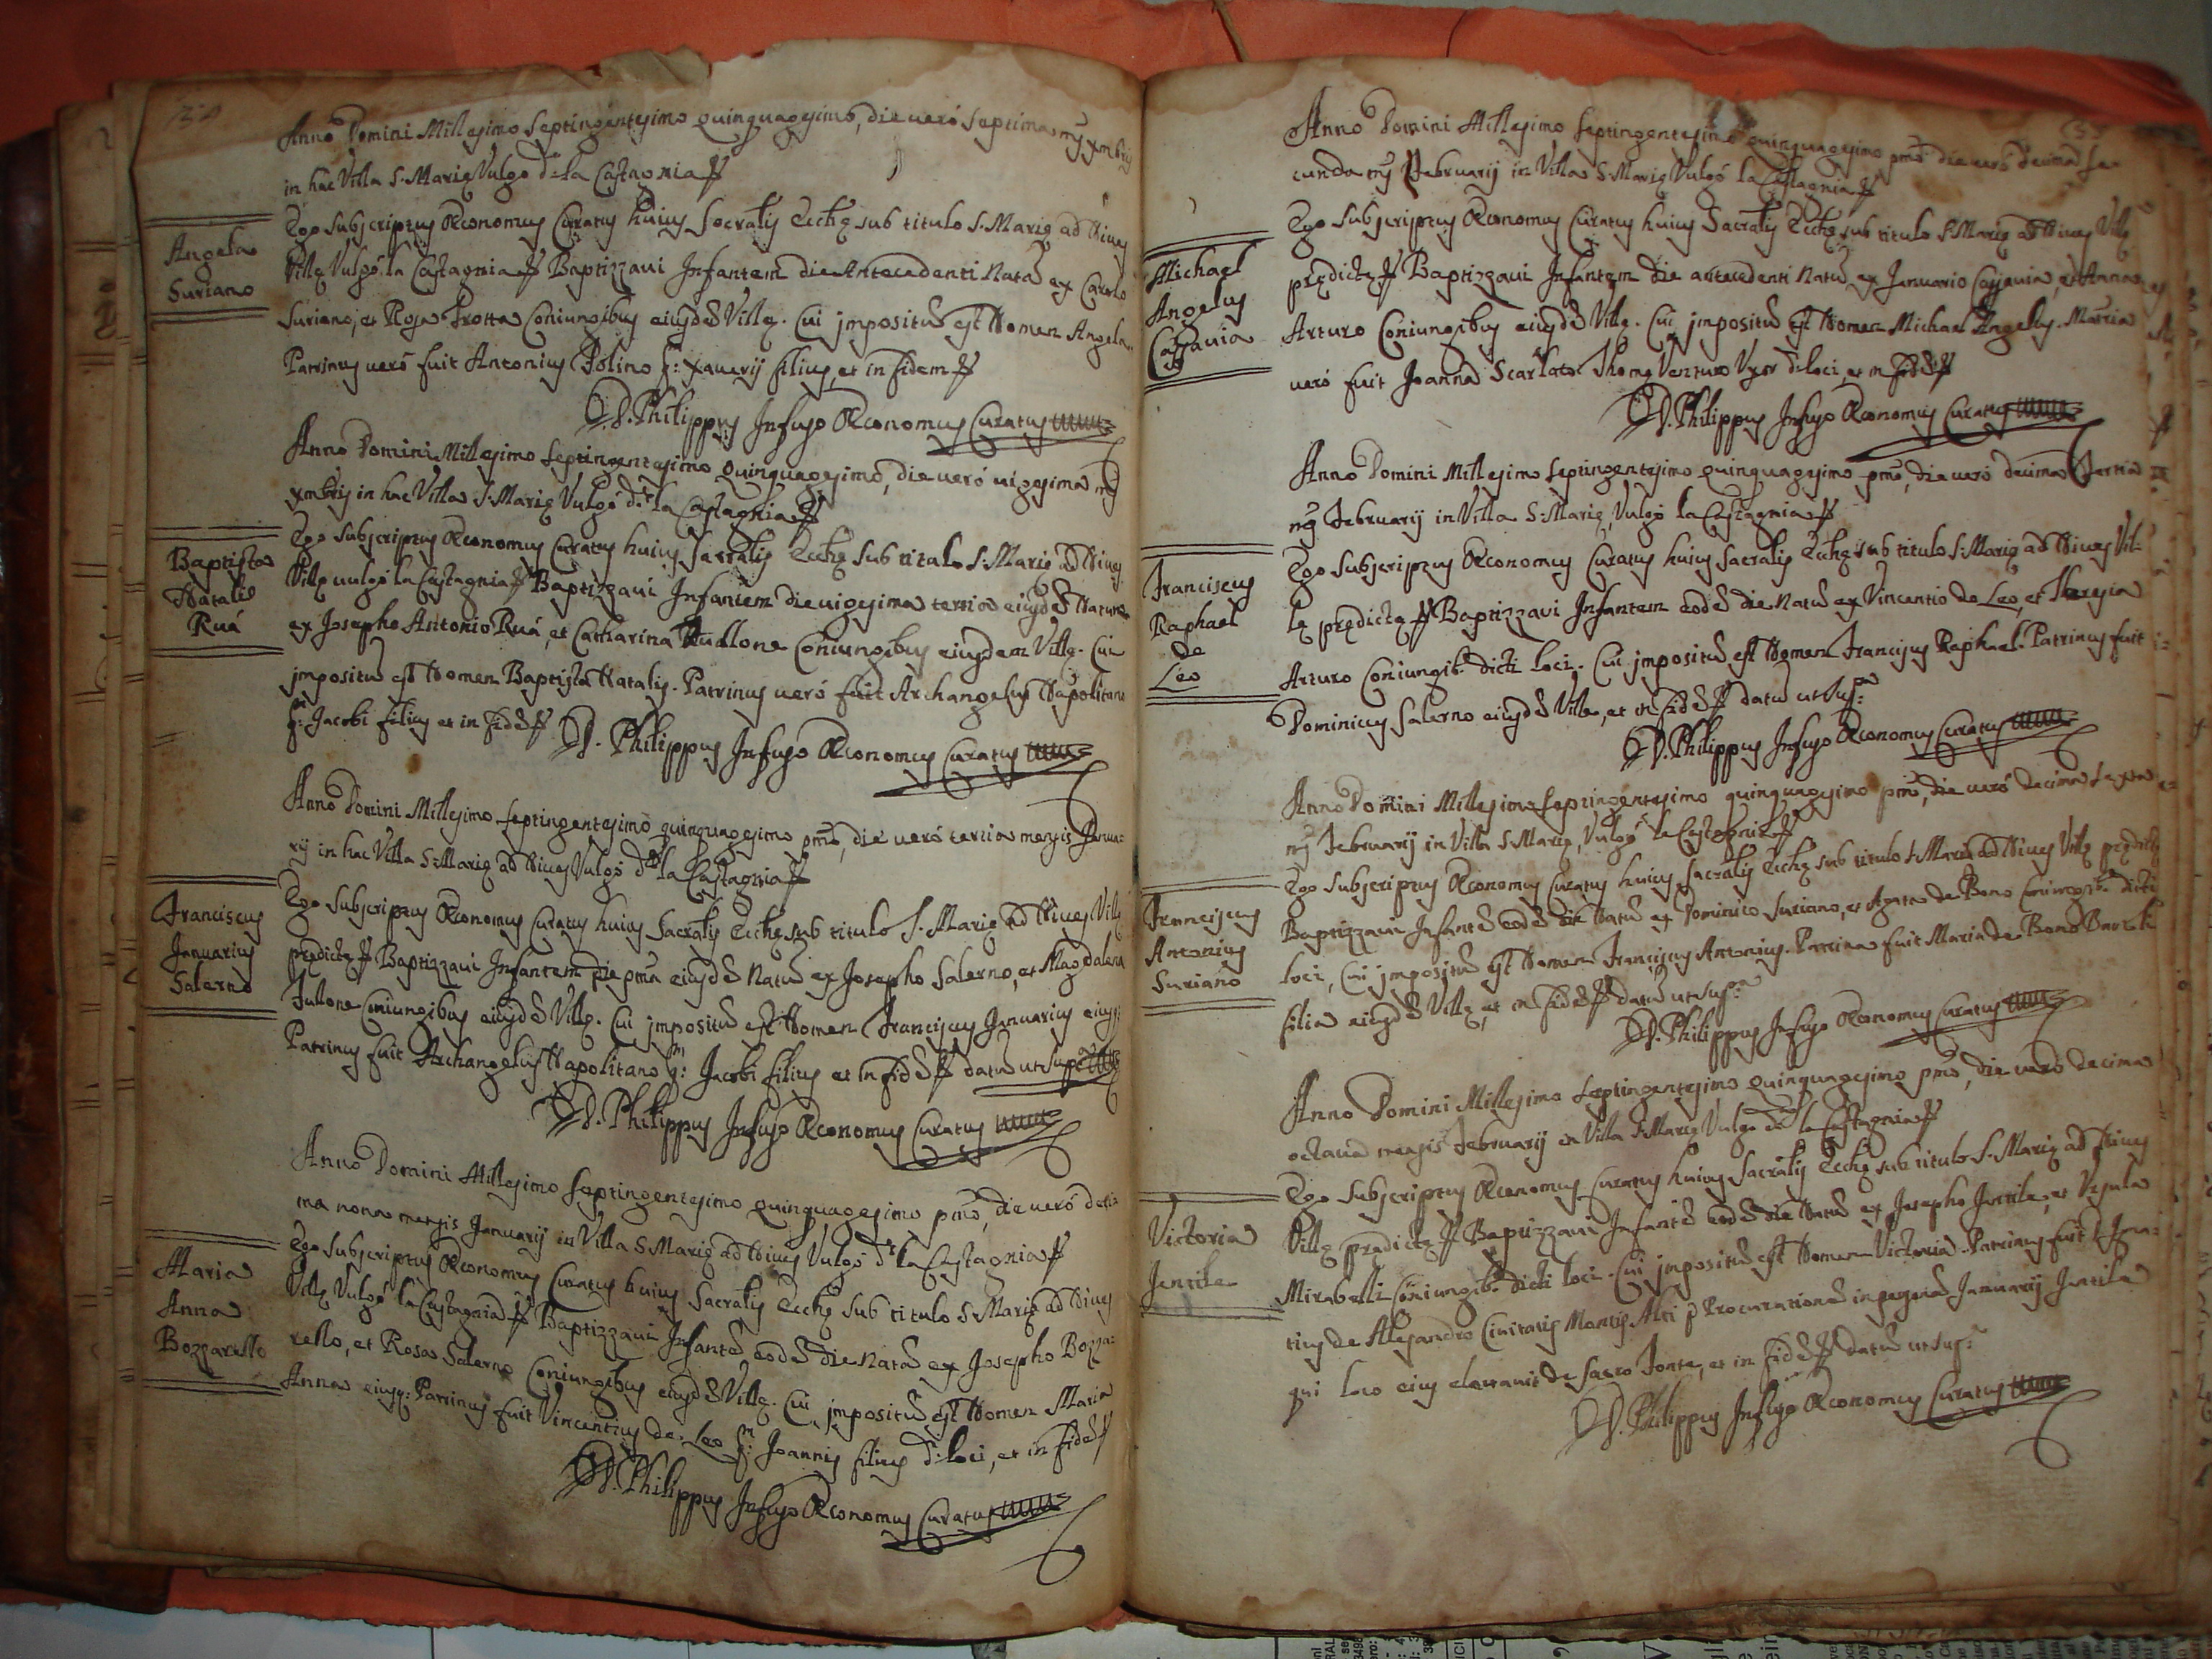 Anno Domini Millesimo Septingentesimo quinquagesimo, die vero septima mẽs xmbris
in hac Villa S. Marię Vulgo dta la Castagnia
Angela
Suriano
Ego subscriptus Œconomus Curatus huius Sacralis Ecclię sub titulo S. Marię ad Nives
Villę Vulgò la Castagnia Baptizzavi Infantem die Antecedenti Natã ex Carolo
Suriano, et Rosa Trotta Coniungibus eiusdẽ Villę. Cui impositũ est Nomen Angela.
Patrinus verò fuit Antonius Polino qm: Xaverij filius, et in fidem
D. Philippus Infuso Œconomus Curatus
Anno Domini Millesimo Septingentesimo quinquagesimo, die verò vigesima mẽs
xmbris in hac Villa S. Marię Vulgò dta la Castagnia
Baptista
Natale
Ruá
Ego subscriptus Œconomus Curatus huius Sacralis Ecclię sub titulo S. Marię ad Nives
Villę vulgò la Castagnia Baptizzavi Infantem die vigesima tertia eiusdẽ Natum
ex Josepho Antonio Ruá, et Catharina Coniungibus eiusdem Villę. Cui
impositũ est Nomen Baptista Natalis. Patrinus verò fuit Archangelus Napolitano
qm: Jacobi filius et in fidẽ D. Philippus Infuso Œconomus Curatus
Anno Domini Millesimo septingentesimo quinquagesimo pmõ, die verò tertia mensis Janua:
rij in hac Villa S. Marię ad Nives Vulgò dta la Castagnia
Franciscus
Januarius
Salerno
Ego subscriptus Œconomus Curatus huius Sacralis Ecclię sub titulo S. Marię ad Nives Villę
prędictę Baptizzavi Infantem, die pma eiusdẽ Natũ ex Josepho Salerno, et Magdalena
Talone Coniungibus eiusdẽ Villę. Cui impositũ est Nomen Franciscus Januarius eiusq:
Patrinus fuit Archangelus Napolitano qm: Jacobi filius et in fidẽ datũ ut supra
D. Philippus Infuso Œconomus Curatus
Anno Domini Millesimo septingentesimo quinquagesimo pmõ, die verò deci:
ma nona mensis Januarij in Villa S. Marię ad Nives Vulgò dta la Castagnia
Maria
Anna
Bozzarello
Ego subscriptus Œconomus Curatus huius Sacralis Ecclię sub titulo S. Marię ad Nives
Villę Vulgò la Castagnia Baptizzavi Infantẽ eodẽ die Natã ex Josepho Bozza:
rello, et Rosa Salerno Coniungibus eiusdẽ Villę. Cui impositũ est Nomen Maria
Anna eiusq: Patrinus fuit Vincentius de Leo qm: Joannis filius d: loci, et in fidẽ
D. Philippus Infuso Œconomus Curatus
Anno Domini Millesimo septingentesimo quinquagesimo pmõ die verò decima se-
cunda mẽs Februarij in Villa S. Marię Vulgò la Castagnia
Michael
Angelus
Cassavia
Ego subscriptus Œconomus Curatus huius Sacralis Ecclię sub titulo S. Marię ad Nives Villę
prędictę Baptizzavi Infantem die antecedenti Natũ ex Januario Cassavia, et Anna
Arturo Coniungibus eiusdẽ Villę. Cui impositũ est Nomen Michael Angelus. Matrina
verò fuit Joanna Scarlato Thomę Venturo Uxor d: loci, et in fidẽ
D. Philippus Infuso Œconomus Curatus
Anno Domini Millesimo septingentesimo quinquagesimo pmõ, die verò decima Tertia
mẽs Februarij in Villa S. Marię, Vulgò la Castagnia
Franciscus
Raphael
De
Leo
Ego subscriptus Œconomus Curatus huius Sacralis Ecclię sub titulo S. Marię ad Nives Vil-
lę prędictę Baptizzavi Infantem eodẽ die Natũ ex Vincentio de Leo, et
Arturo Coniungib: dicti loci. Cui impositũ est Nomen Franciscus Raphael. Patrinus fuit
Dominicus Salerno eiusdẽ Villę, et in fidẽ datũ ut supra
D. Philippus Infuso Œconomus Curatus
Anno Domini Millesimo Septingentesimo quinquagesimo pmõ, die verò decima sexta
mẽs Februarij in Villa S. Marię, Vulgò la Castagnia
Franciscus
Antonius
Suriano
Ego subscriptus Œconomus Curatus huius Sacralis Ecclię sub titulo S. Marię ad Nives Villę prędictę
Baptizzavi Infantẽ eodẽ die Natũ ex Dominico Suriano, et Agata de Bono Coniungib: dicti
loci, Cui impositũ est Nomen Franciscus Antonius. Patrina fuit Maria de Bono
filia eiusdẽ Villę, et in fidẽ datũ ut supra
D. Philippus Infuso Œconomus Curatus
Anno Domini Millesimo Septingentesimo quinquagesimo pmõ, die verò decima
octava mensis Februarij in Villa S. Marię Vulgo dta la Castagnia
Victoria
Jentile
Ego subscriptus Œconomus Curatus huius Sacralis Ecclię sub titulo S. Marię ad Nives
Villę prędictę Baptizzavi Infantẽ eodẽ die Natã ex Josepho Jentile, et Ursula
Mirabelli Coniungib: dicti loci. Cui impositũ est Nomen Victoria. Patrinus fuit
de Alesandro Civitatis Montis Alti Procurationẽ in Januarij Jentile
qui loco eius elevavit de Sacro Fonte, et in fidẽ datũ ut supra
D. Philippus Infuso Œconomus Curatus